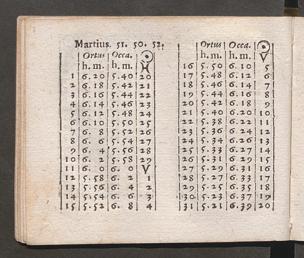 Martius. 51. 50. 52.
Ortus Occa. ☉
h. m. h. m. ♓
1 6.20 5.40 20
2 6.18 5.42 21
3 6.16 5.44 22
4 6.14 5.46 23
5 6.12 5.48 24
6 6.10 5.50 25
7 6. 8 5.52 26
8 6. 6 5.54 27
9 6. 4 5.56 28
10 6. 2 5.58 29
11 6. 0 6. 0 V
12 5.58 6. 2 1
13 5.56 6. 4 2
14 5.54 6. 6 3
15 5.52 6. 8 4
Ortus Occa. ☉
h. m. h. m. V
16 5.50 6.10 5
17 5.48 6.12 6
18 5.46 6.14 7
19 5.44 6.16 8
20 5.42 6.18 9
21 5.40 6.20 10
22 5.38 6.22 11
23 5.36 6.24 12
24 5.34 6.26 13
25 5.33 6.27 14
26 5.31 6.29 15
27 5.29 6.31 16
28 5.27 6.33 17
29 5.25 6.35 18
30 5.23 6.37 19
31 5.21 6.39 20